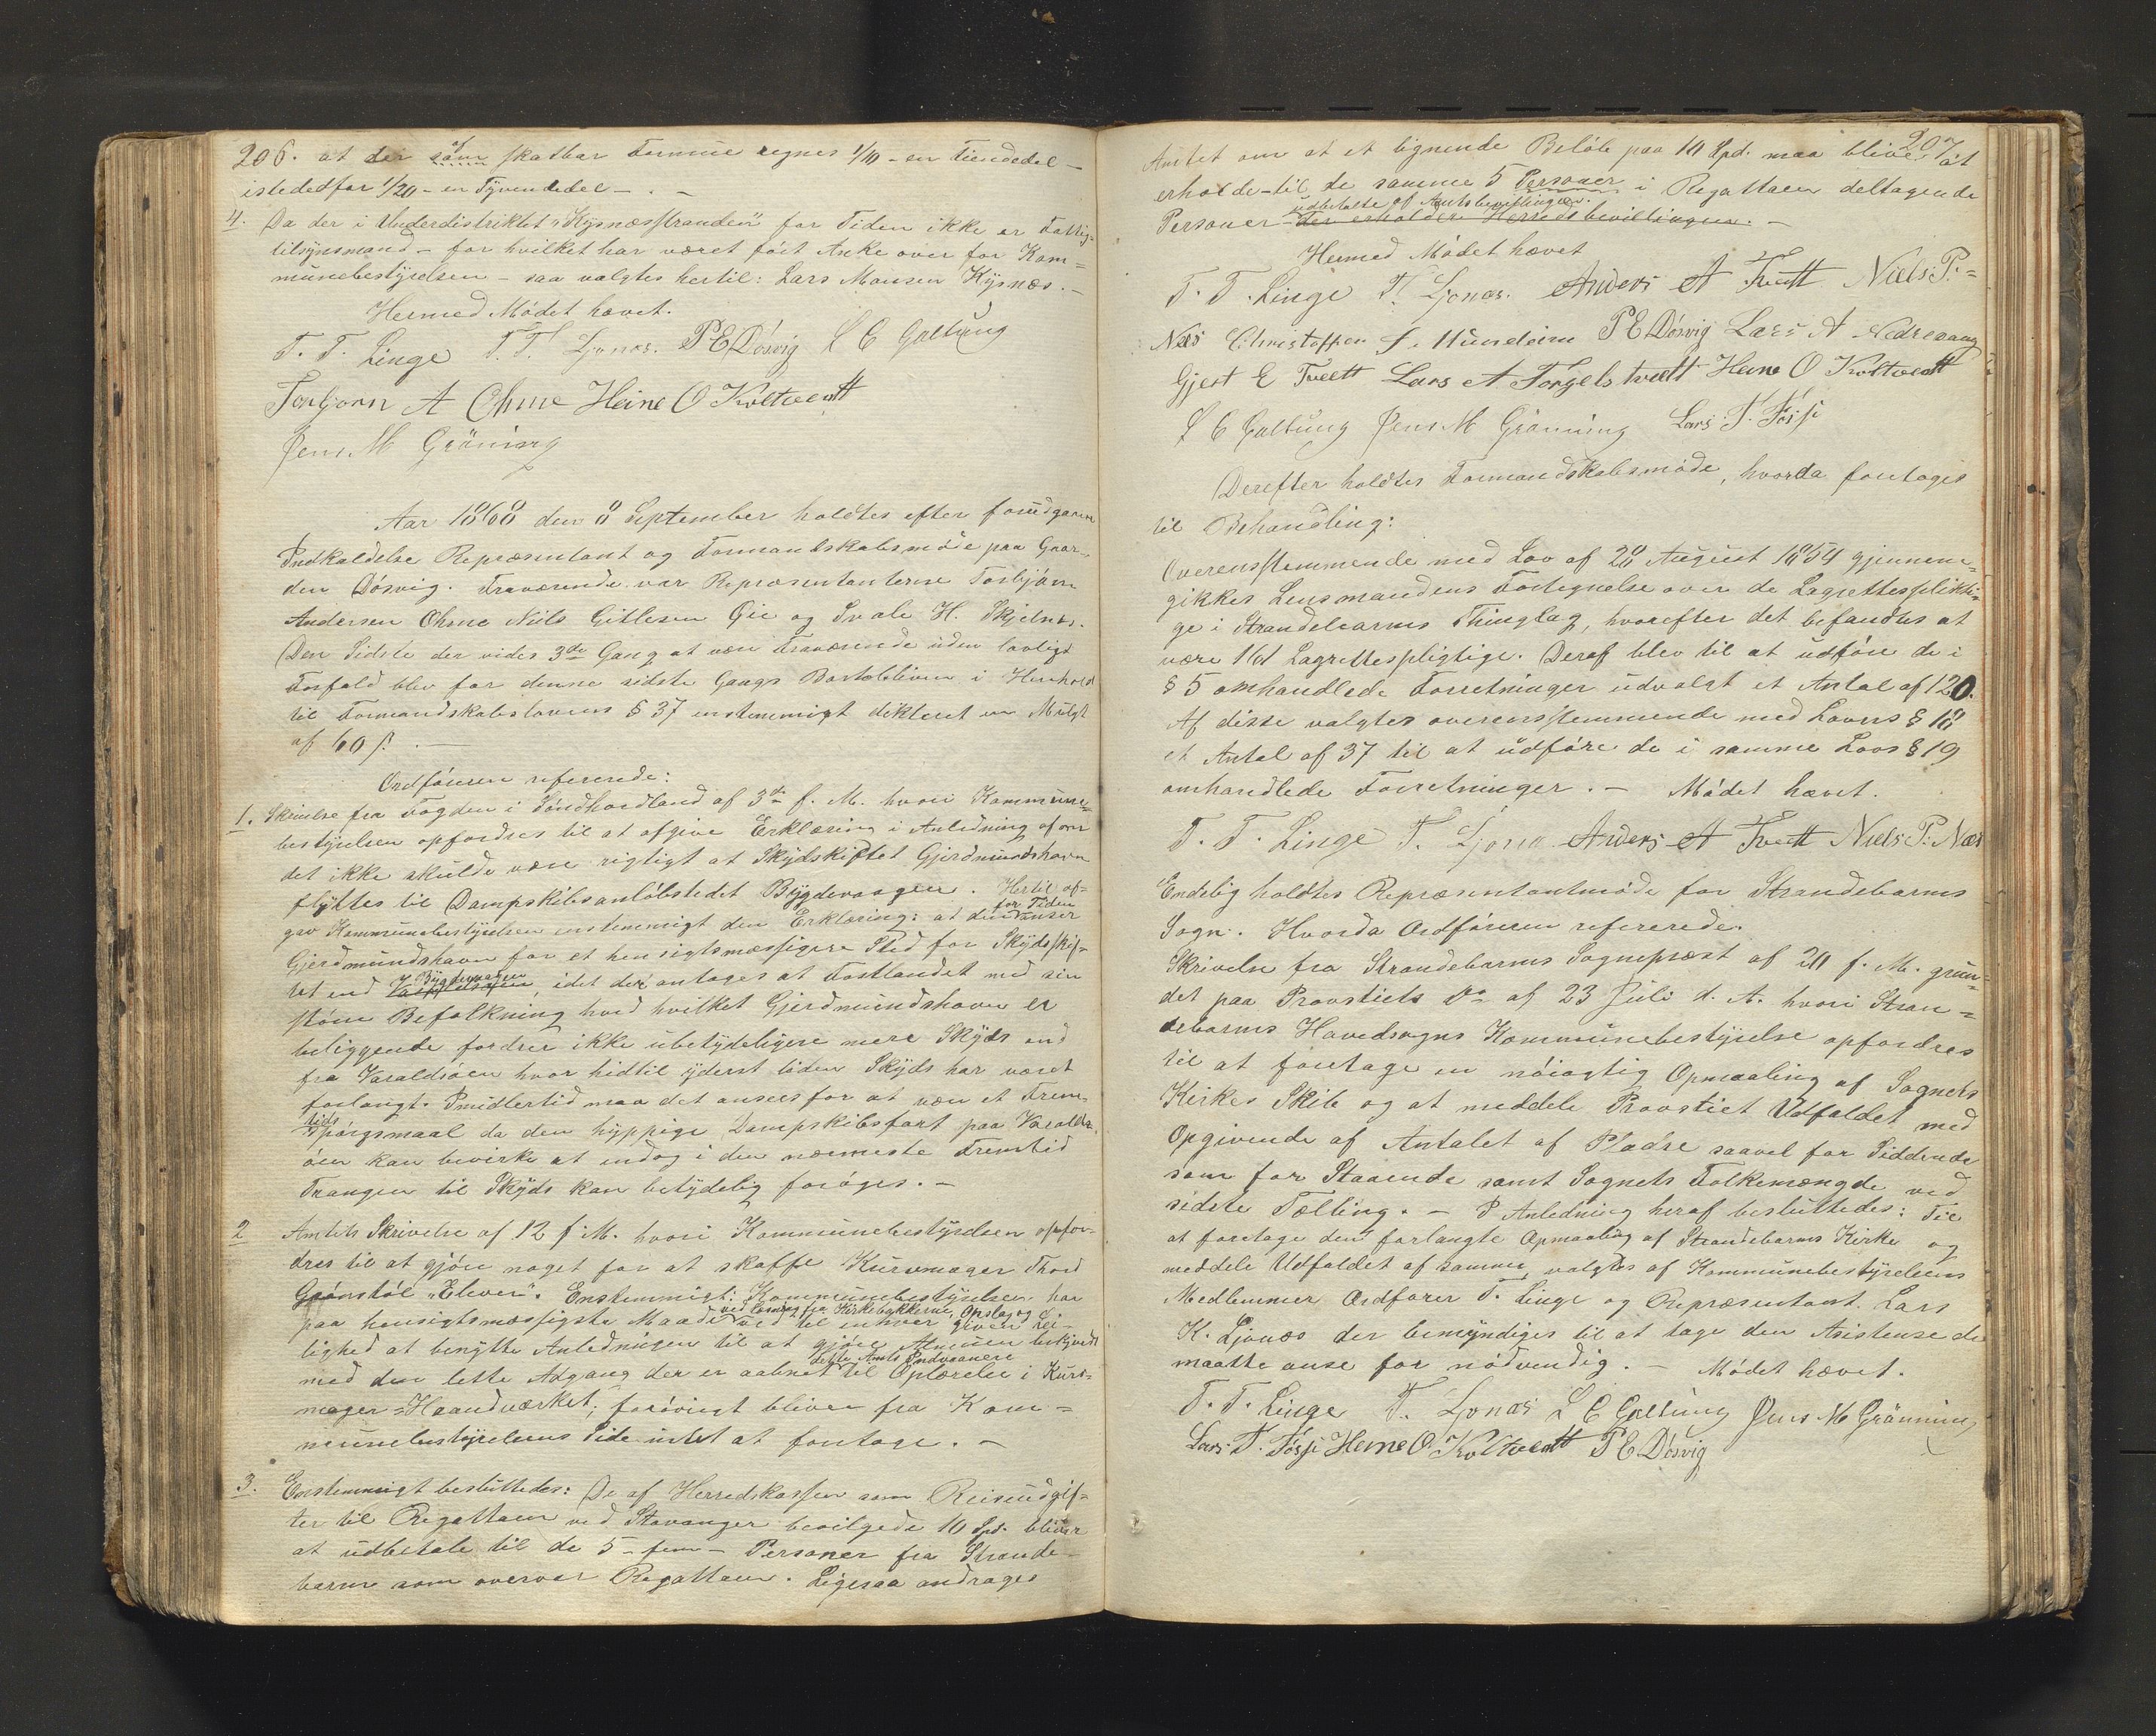 206. at der som af skatbar Formue regnes 1/10 - en Tiendedel -
istedetfor 1/20 - en Tyvendedel - . -
4. Da der i Underdistriktet "Kysnæsstranden" for Tiden ikke er Fattig-
tilsynsmand - for hvilket har været ført Anke over for Kom-
munebestyrelsen - saa valgtes hertil: Lars Monsen Kysnæs. -
Hermed Mødet hævet.
T. T. Linge T. T. Ljonæs. P E Døsvig L C Galtung
Torbjørn A Ohme Heine O Koltvedt
Jens M Gröning
Aar 1868 den 8 September holdtes efter forudgaaen
Indkaldelse Repræsentant og Formandskabsmøde paa Gaar-
den Døsvig. Fraværende var Repræsentanterne Torbjørn
Andersen Ohme Niels Gitlesen Gie og Svale H. Skjelnæs.
Den Sidste der vides 3die Gang at være Fraværende uden lovligt
Forfald blev for denne sidste Gangs Bortebliven i Henhold
til Formandskabslovens § 37 enstemmigt dikteret en Mulgt
af 60 s. -
Ordføreren refererede:
1. Skrivelse fra Fogden i Søndhordland af 3die f. M. hvori Kommune-
bestyrelsen opfordres til at afgive Erklæring i Anledning af om
det ikke skulde være rigtigt at Skydskiftet Gjerdmundshavn
flyttes til Dampskibsanløbstedet Bygdevaagen. Hertil af-
gav Kommunebestyrelsen enstemmigt den Erklæring: at den for Tiden anser
Gjerdmundshavn for et hensigtsmæssigere Sted for Skydsskif-
tet end Bygdevaagen, idet der antages at Fastlandet med sin
større Befolkning hvod hvilket Gjerdmundshavn er
beliggende fordrer ikke ubetydeligere mere Skyds end
fra Varaldsøen hvor hidtil yderst liden Skyds har været
forlangt. Imidlertid maa det ansees for at være et Frem-
tids Spørgsmaal da den hyppige Dampskibsfart paa Varalds-
øen kan bevirke at endog i den nærmeste Fremtid
Trangen til Skyds kan betydelig forøges. -
2 Amtets Skrivelse af 12 f. M. hvori Kommunebestyrelsen opfor-
dres til at gjøre noget for at skaffe Kurvmager Thord
Grønstøl "Elever". Enstemmigt: Kommunebestyrelsen har
paa hensigtsmæssigste Maade ved Lensmd fra Kirkebakkerne, Opslag og d. ved til enhver given Lei-
lighed at benytte Anledningen til at gjøre Almuen bekjendt
med den lette Adgang der er aabnet dette Amts Indvaanere til Oplærelse i Kurv-
mager-Haandværket; forøvrigt bliver fra Kom-
munebestyrelsens Side intet at foretage. -
3. Enstemmigt besluttedes: De af Herredskassen som Reiseudgif-
ter til Regattaen ved Stavanger bevilgede 10 Spd. bliver
at udbetale til de 5 - fem - Personer fra Strande-
barm som overvar Regattaen. Ligesaa andrages
207
Amtet om at et lignende Beløb paa 10 Spd. maa blive at
erholde - til de samme 5 Personer i Regattaen deltagende
Personer - udbetalte af Amtsbevilgningen. der erholder Herredsbevillingen. -
Hermed Mødet hævet
T. T. Linge T. Ljonæs. Anders A Tvedt Niels P. =
Næs Christoffer S. Mundeim P E Døsvig Lars A Nedrevaag
Gjert E Tvedt Lars A Torgelstvedt Heine O Koltvedt
L C Galtung Jens M Grönning Lars T. Fosse
Derefter holdtes Formandskabsmøde, hvorda foretoges
til Behandling:
Overensstemmende med Lov af 28 August 1854 gjennem-
gikkes Lensmandens Fortegnelse over de Lagrettesplikti-
ge i Strandebarms Thinglag, hvorefter det befandtes at
være 161 Lagrettespligtige. Deraf blev til at udføre de i
§ 5 omhandlede Forretninger udvalgt et Antal af 120.
Af disse valgtes overensstemmende med Lovens § 18
et Antal af 37 til at udføre de i samme Lovs § 19
omhandlede Forretninger. - Mødet hævet.
T. T. Linge T. Ljonæs Anders A Tvedt Niels P. Næs
Endelig holdtes Repræsentantmøde for Strandebarms
Sogn. Hvorda Ordføreren refererede.
Skrivelse fra Strandebarms Sognepræst af 20 f. M. grun-
det paa Provstiets do af 23 Juli d. A. hvori Stran-
debarms Hovedsogns Kommunebestyrelse opfordres
til at foretage en nøiagtig Opmaaling af Sognets
Kirkes Skib og at meddele Provstiet Udfaldet med
Opgivende af Antalet af Pladse saavel for Siddende
som for Staaende samt Sognets Folkemængde ved
sidste Tælling. - I Anledning heraf besluttedes: Til
at foretage den forlangte Opmaaling af Strandebarms Kirke og
meddele Udfaldet af samme valgtes af Kommunebestyrelsens
Medlemmer Ordfører T. Linge og Repræsentant Lars
K. Ljonæs der bemyndiges til at tage den Asistense de
maatte anse for nødvendig. - Mødet hævet.
T. T. Linge T. Ljonæs L C Galtung Jens M Grönning
Lars T. Fosse Heine O Koltvedt P E Døsvig